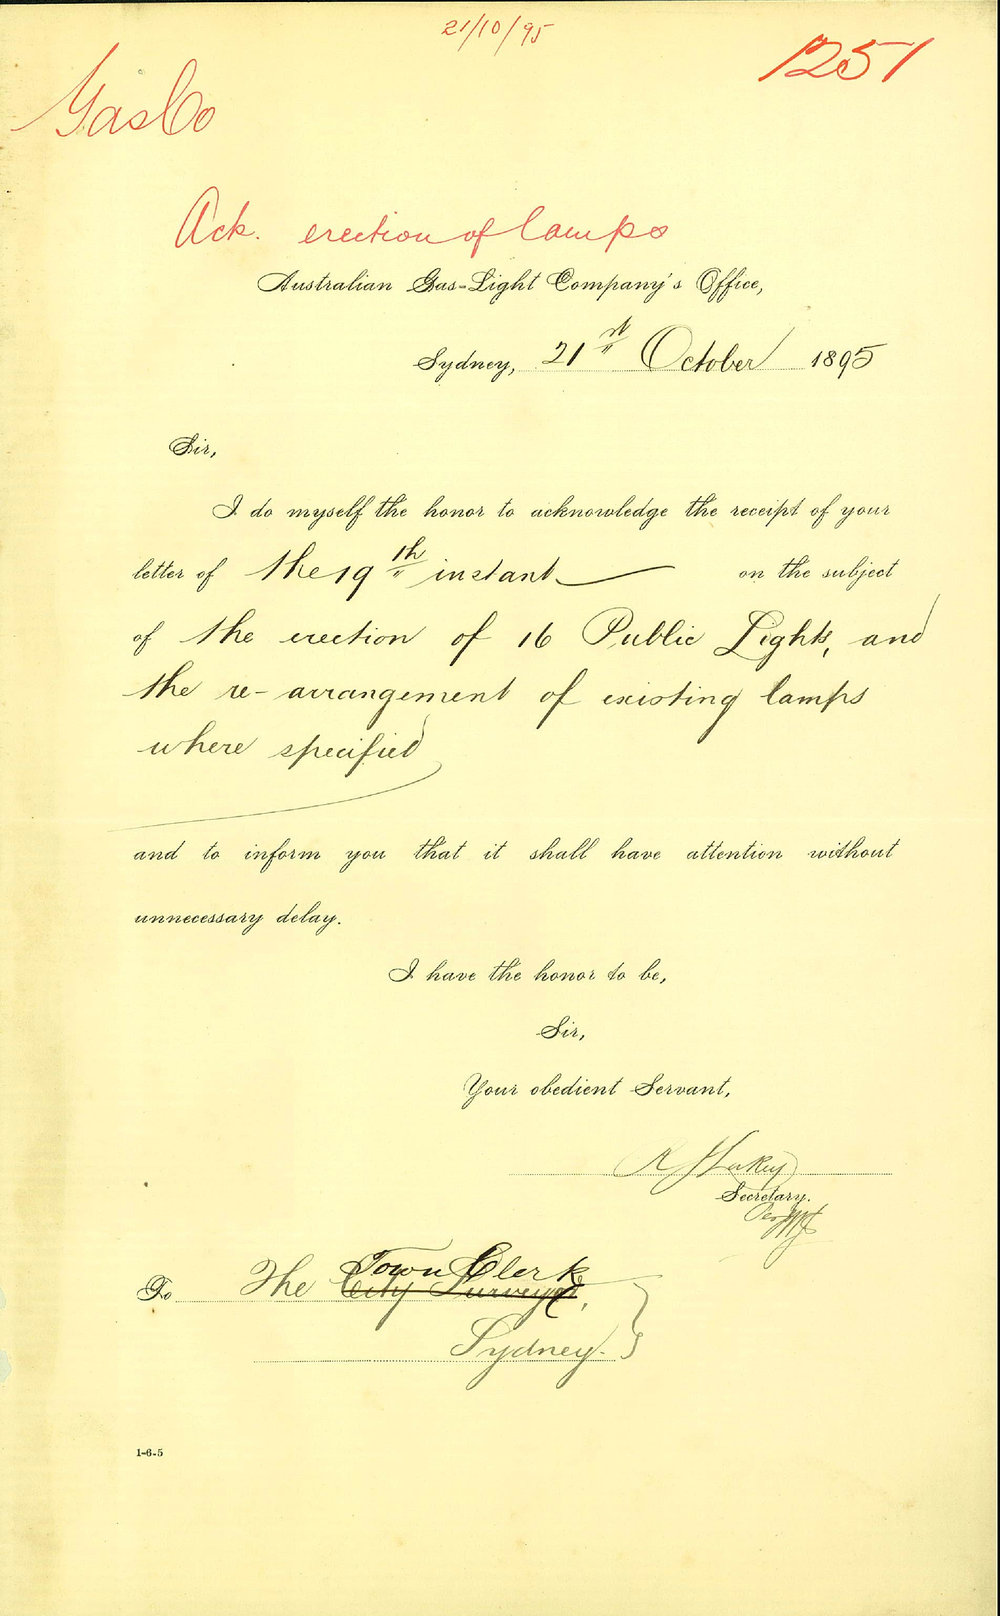 21/10/95
1251
Gas Co
Ack. erection of lamps
Australian Gas-Light Company's Office,
Sydney, 21st October 1895
Sir,
I do myself the honor to acknowledge the receipt of your
letter of the 19th instant on the subject
of the erection of 16 Public Lights, and
the re-arrangement of existing lamps
where specified
and to inform you that it shall have attention without
unnecessary delay.
I have the honor to be,
Sir,
Your obedient Servant,
Secretary.
Town Clerk
To The City Surveyor,
Sydney.
1-6-5